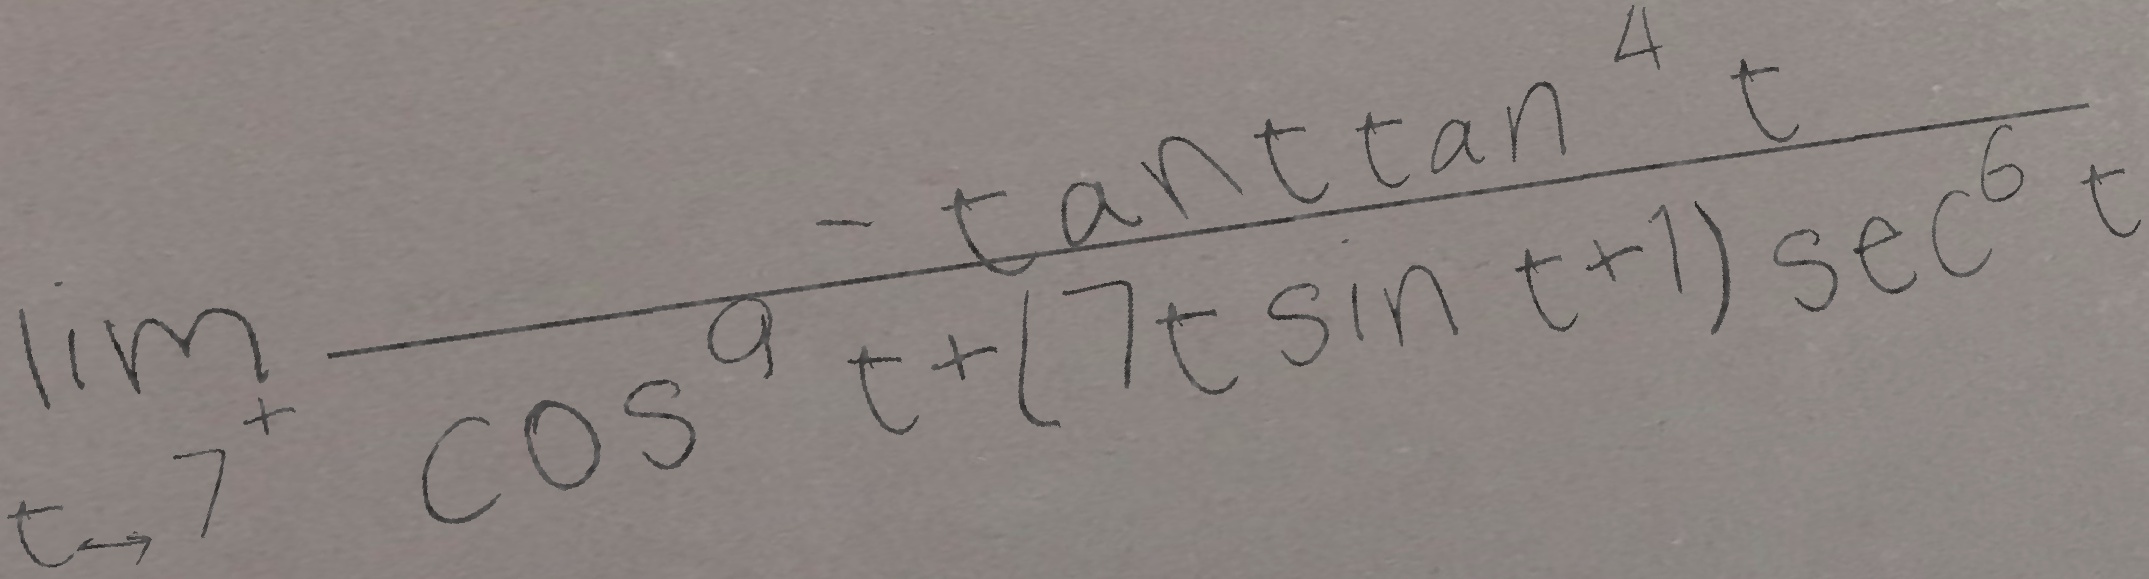 \lim_{t \to 7^+} \frac{-\tan t \tan^4 t}{\cos^9 t + (7t \sin t + 1) \sec^6 t}